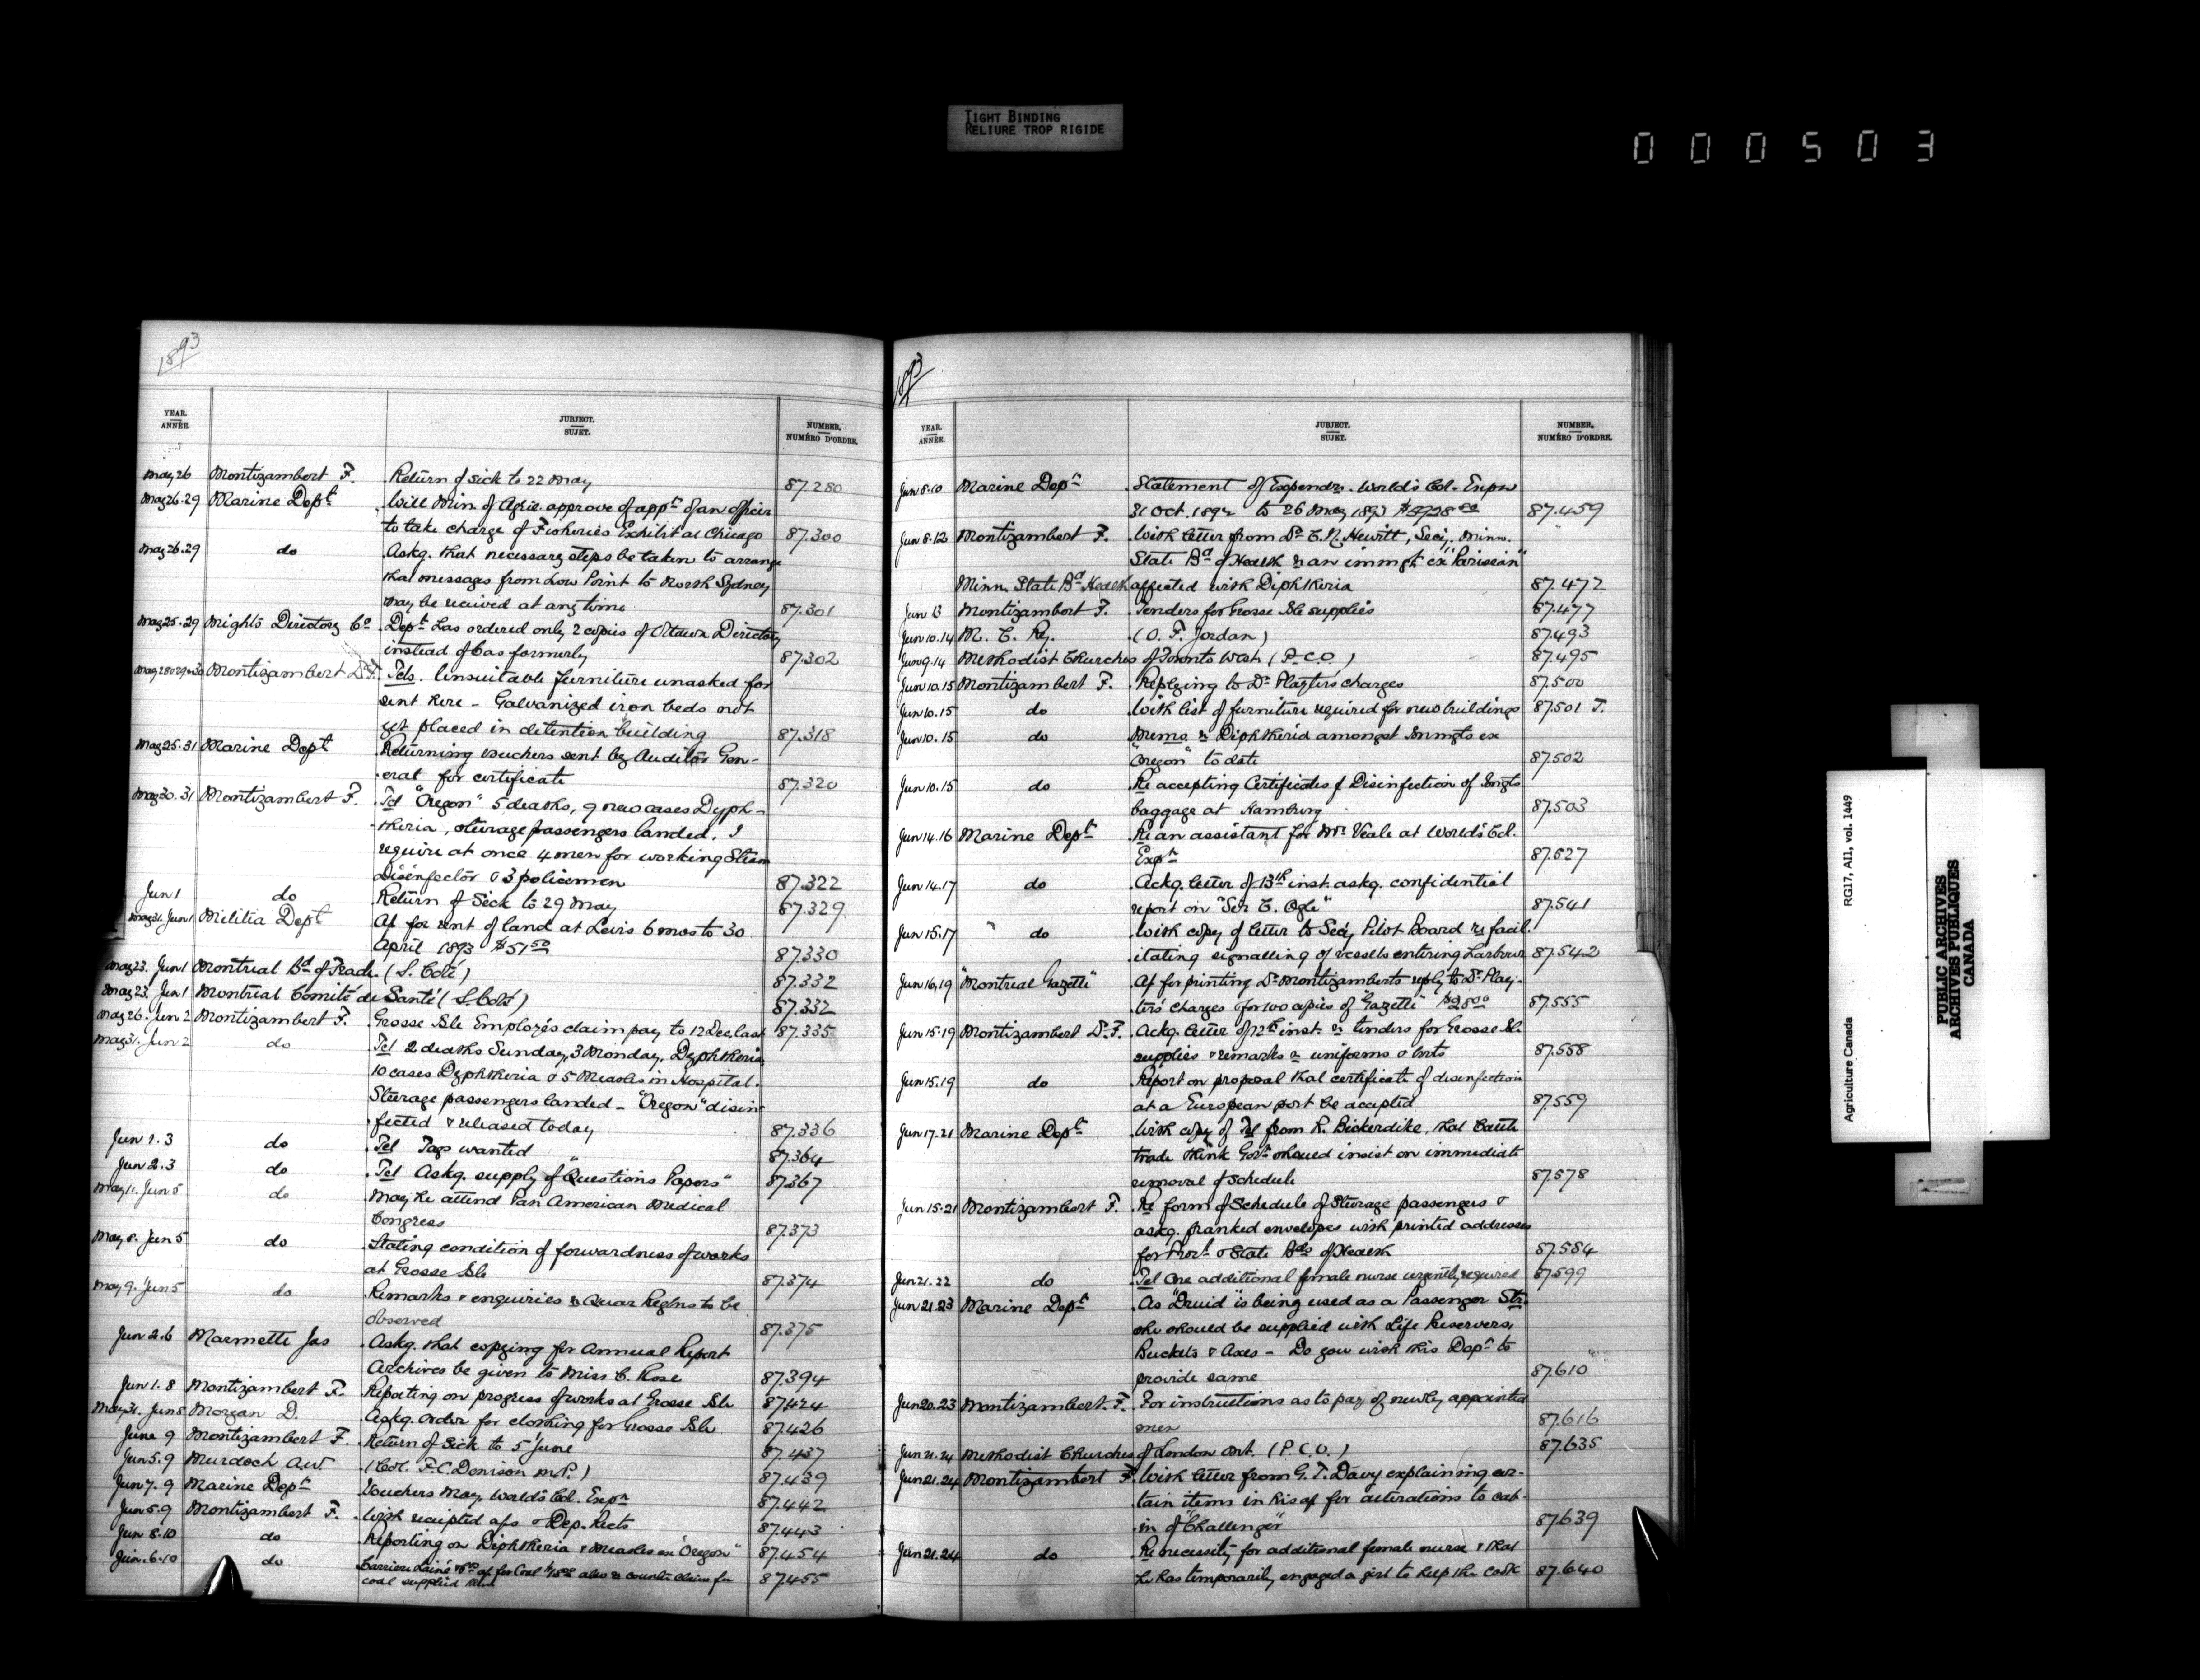 TIGHT BINDING
RELIURE TROP RIGIDE
000503
1893
YEAR. ANNÉE. SUBJECT. SUJET. NUMBER, NUMÉRO D'ORDRE.
May 26 Montizambert F. Return of sick to 22 May 87.280
May 26.29 Marine Dept Will Min. of Agric. approve of appt of an officer
to take charge of Fisheries Exhibit at Chicago 87.300
May 26.29 do Askg. that necessary steps be taken to arrange
that messages from Low Point to North Sydney
may be received at any time 87.301
May 25.29 Might's Directory Co Dept has ordered only 2 copies of Ottawa Directory
instead of 6 as formerly 87.302
May 28 & 29.30 Montizambert Dr F. Tels. Unsuitable furniture unasked for
sent here - Galvanized iron beds not
yet placed in detention building 87.318
May 25.31 Marine Dept Returning vouchers sent by Auditor Gen-
eral for certificate 87.320
May 30.31 Montizambert F. Tel "Oregon" 5 deaths, 9 new cases Dyph-
theria, steerage passengers landed. I
require at once 4 men for working Steam
Disinfector & 3 policemen 87.322
Jun 1 do Return of Sick to 29 May 87.329
May 31. Jun 1 Militia Dept A/c for rent of land at Levis 6 mos to 30
April 1893 $51.50 87.330
May 23. Jun 1 Montreal Bd of Trade. (S. Coté) 87.332
May 23. Jun 1 Montreal Comité de Santé (S. Coté) 87.332
May 26. Jun 2 Montizambert F. Grosse Isle Employés claim pay to 12 Dec. last 87.335
May 31. Jun 2 do Tel 2 deaths Sunday, 3 Monday, Dyphtheria,
10 cases Dyphtheria & 5 Measles in Hospital.
Steerage passengers landed - "Oregon" disin-
fected & released today 87.336
Jun 1.3 do Tel Tags wanted 87.364
Jun 2.3 do Tel Askg. supply of "Questions Papers" 87.367
May 11. Jun 5 do May he attend Pan American Medical
Congress 87.373
May 8. Jun 5 do Stating condition of forwardness of works
at Grosse Isle 87.374
May 9. Jun 5 do Remarks & enquiries re Quar Regtns to be
observed 87.375
Jun 2.6 Marmette Jas Askg. that copying for Annual Report
Archives be given to Miss C. Rose 87.394
Jun 1.8 Montizambert F. Reporting on progress of works at Grosse Isle 87.424
May 31. Jun 8 Morgan D. Askg. order for clothing for Grosse Isle 87.426
June 9 Montizambert F. Return of Sick to 5 June 87.437
Jun 5.9 Murdoch A.W. (Col. F.C. Denison M.P.) 87.439
Jun 7.9 Marine Dept Vouchers May, World's Col. Expn 87.442
Jun 5.9 Montizambert F. With receipted a/cs & Dep. Rects 87.443
Jun 8.10 do Reporting on Diphtheria & Measles on "Oregon" 87.454
Jun 6.10 do a/c for Coal also re counter claim for
coal supplied 87.455
1893
YEAR. ANNÉE. SUBJECT. SUJET. NUMBER, NUMÉRO D'ORDRE.
Jun 8.10 Marine Dept Statement of Expendre. World's Col. Expn
31 Oct. 1892 to 26 May 1893 87.459
Jun 8.12 Montizambert F. With letter from Dr C. N. Hewitt, Secy. Minn.
State Bd of Health re an immgt ex "Parisian"
Minn. State Bd Health affected with Diphtheria 87.472
Jun 13 Montizambert F. Tenders for Grosse Isle supplies 87.477
Jun 10.14 M. C. Ry. (O. F. Jordan) 87.493
Jun 9.14 Methodist Churches of Toronto West (P.C.O.) 87.495
Jun 10.15 Montizambert F. Replying to Dr Playter's charges 87.500
Jun 10.15 do With list of furniture required for new buildings 87.501 T.
Jun 10.15 do Memo re Diphtheria amongst Immgts ex
"Oregon" to date 87.502
Jun 10.15 do Re accepting Certificates of Disinfection of Immgts
baggage at Hamburg 87.503
Jun 14.16 Marine Dept Re an assistant for Mr Veale at World's Col.
Expn 87.527
Jun 14.17 do Ackg. letter of 13th inst. askg. confidential
report on "Sir C. Ogle" 87.541
Jun 15.17 " do With copy of letter to Secy Pilot Board re facil-
itating signalling of vessels entering harbour 87.542
Jun 16.19 "Montreal Gazette" A/c for printing Dr Montizambert's reply to Dr Play-
ter's charges & for 100 copies of "Gazette" $28.00 87.555
Jun 15.19 Montizambert Dr F. Ackg. letter of 12th inst. re tenders for Grosse Isle
supplies & remarks re uniforms & boots 87.558
Jun 15.19 do Report on proposal that certificate of disinfection
at a European port be accepted 87.559
Jun 17.21 Marine Dept With copy of Tel from R. Bickerdike, that Cattle
trade think Govt should insist on immediate
removal of schedule 87.578
Jun 15.21 Montizambert F. Re form of Schedule of Steerage passengers &
askg. franked envelopes with printed addresses
for Provl & State Bds of Health 87.584
Jun 21.22 do Tel One additional female nurse urgently required 87.599
Jun 21.23 Marine Dept As "Druid" is being used as a Passenger Str.
she should be supplied with Life Preservers,
Buckets & Axes - Do you wish this Dept to
provide same 87.610
Jun 20.23 Montizambert. F. For instructions as to pay of newly appointed
men 87.616
Jun 21.24 Methodist Churches of London Ont. (P.C.O.) 87.635
Jun 21.24 Montizambert F. With letter from G. T. Davy explaining cer-
tain items in his a/c for alterations to cab-
in of "Challenger" 87.639
Jun 21.24 do Re necessity for additional female nurse & that
he has temporarily engaged a girl to help the cook 87.640
Agriculture Canada RG17, AI1, vol. 1449
PUBLIC ARCHIVES
ARCHIVES PUBLIQUES
CANADA